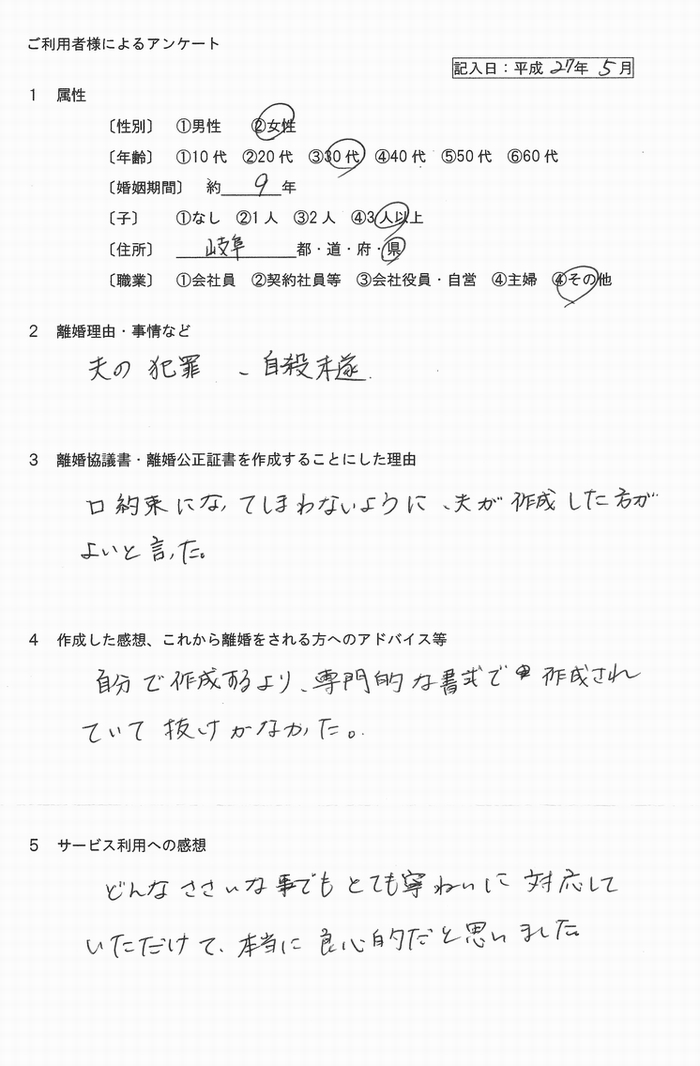 ご利用者様によるアンケート
記入日：平成 27年 5月
1 属性
〔性別〕 ①男性 ②女性
〔年齢〕 ①10代 ②20代 ③30代 ④40代 ⑤50代 ⑥60代
〔婚姻期間〕 約 9 年
〔子〕 ①なし ②1人 ③2人 ④3人以上
〔住所〕 岐阜 都・道・府・県
〔職業〕 ①会社員 ②契約社員等 ③会社役員・自営 ④主婦 ④その他
2 離婚理由・事情など
夫の犯罪 、自殺未遂.
3 離婚協議書・離婚公正証書を作成することにした理由
口約束になってしまわないように、夫が作成した方が
よいと言った。
4 作成した感想、これから離婚をされる方へのアドバイス等
自分で作成するより、専門的な書式で 作成され
ていて抜けがなかった。
5 サービス利用への感想
どんなささいな事でもとても寧ねいに対応して
いただけて、本当に良心的だと思いました。